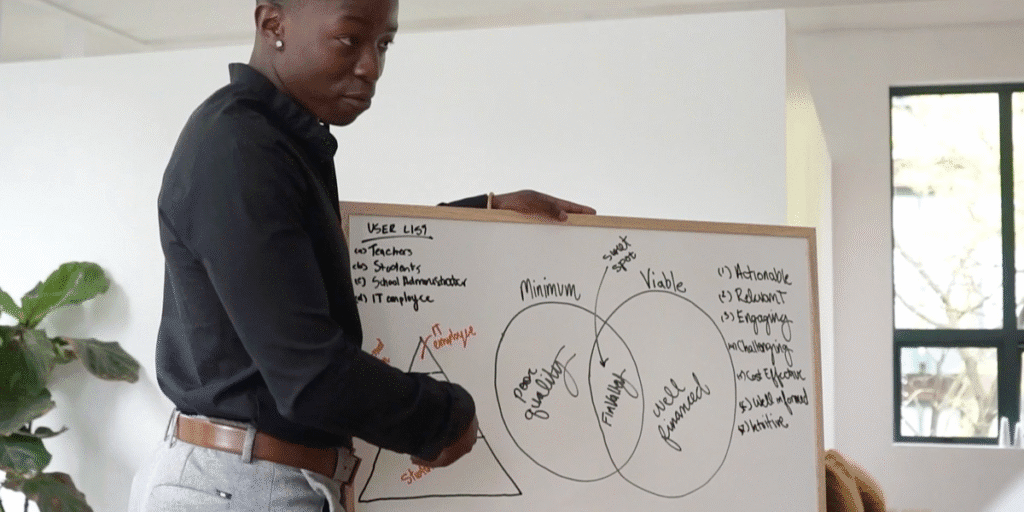 USER LIST
(a) Teachers
(b) Stodents
(c) School Administrator
(d) IT employee
IT
employee
Minimum
Viable
sweet
spot
Poor
quality
well
financed
(1) Actionable
(2) Relevant
(3) Engaging
(4) Challenging
(5) Cost Effective
Well informed
Intuitive